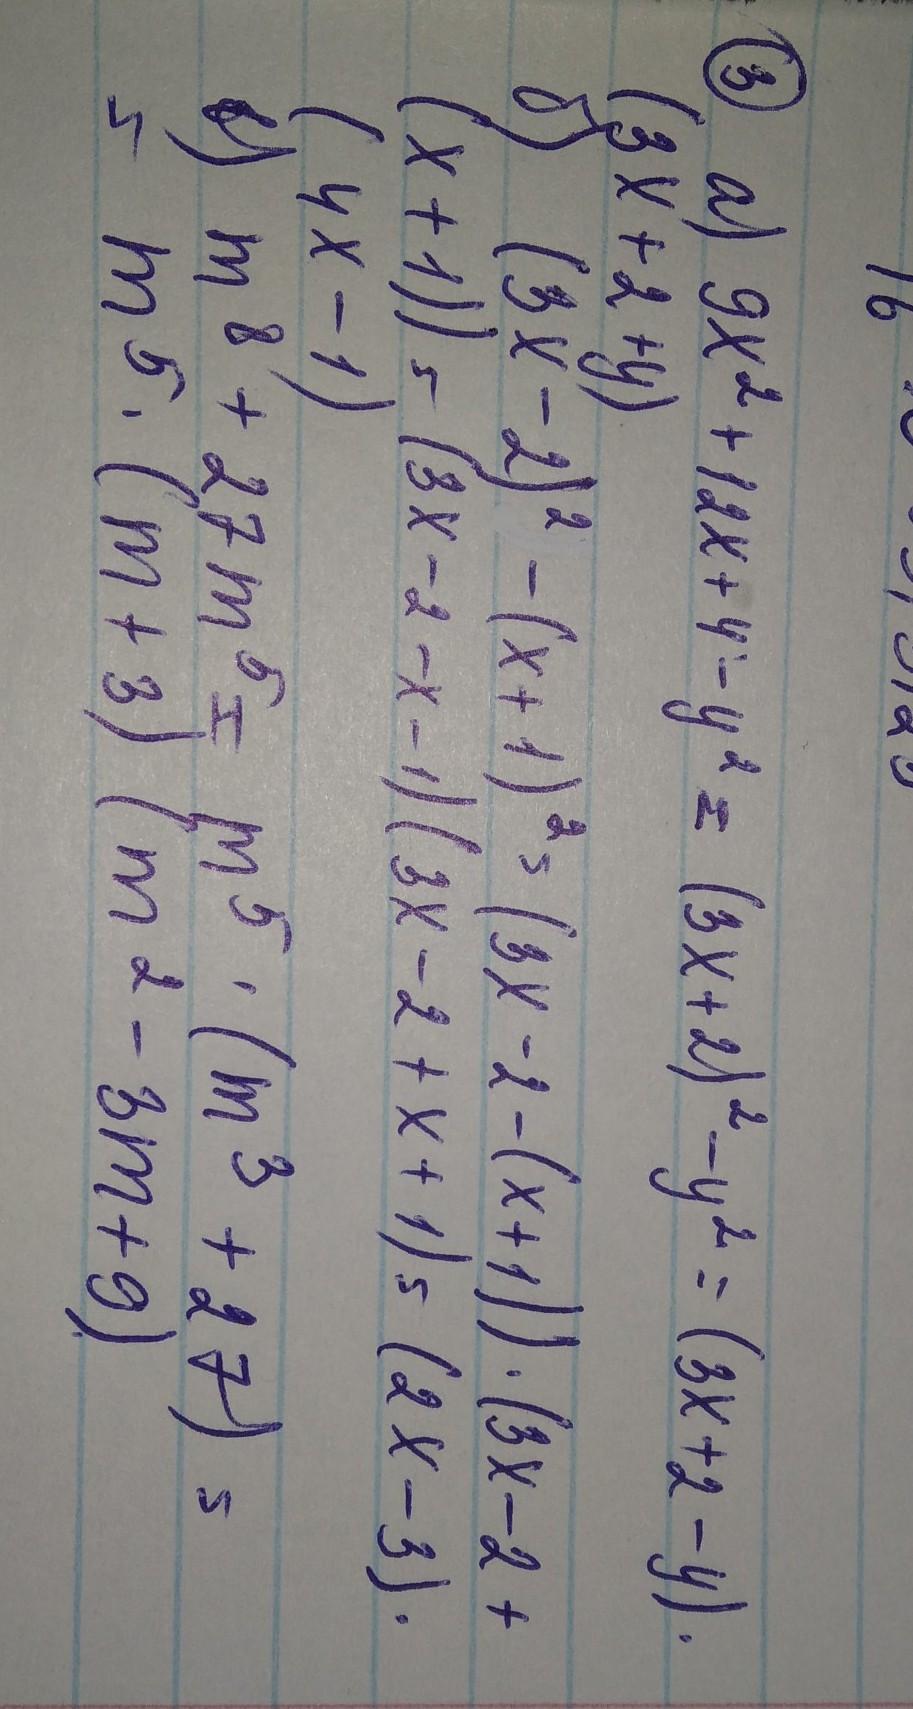 ③ а) 9x² + 12x + 4 - y² = (3x+2)² - y² = (3x+2-y)·
(3x+2+y)
б) (3x-2)² - (x+1)² = (3x-2-(x+1))·(3x-2+
(x+1)) = (3x-2-x-1)(3x-2+x+1) = (2x-3)·
(4x-1)
в) m⁸ + 27m⁵ = m⁵·(m³+27) =
= m⁵·(m+3)(m²-3m+9)